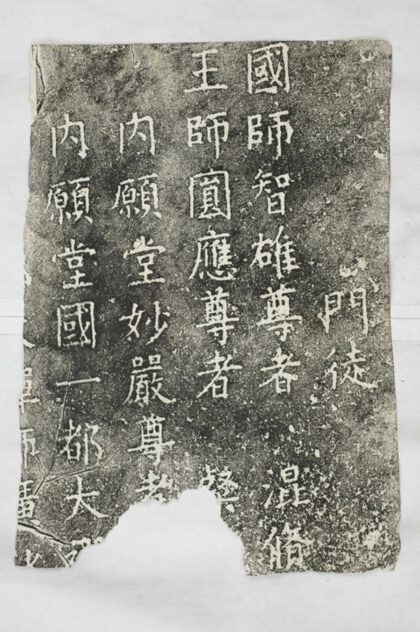 門徒
國師智雄尊者 混脩
王師圓應尊者
內願堂妙嚴尊者
內願堂國一都大
師